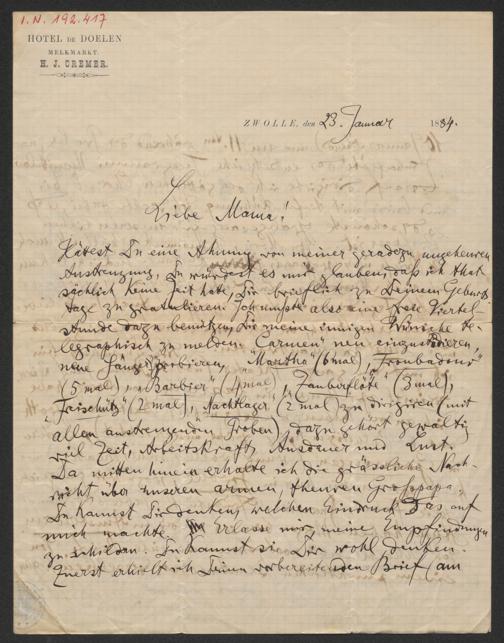 I.N. 192.417
HOTEL DE DOELEN
MELKMARKT.
H. J. CREMER.
ZWOLLE, den 23. Januar 1884.
Liebe Mama!
Hättest Du eine Ahnung von meiner geradezu ungeheuren
Anstrengung, Du würdest es mir glauben, daß ich that
sächlich keine Zeit hatte, Dir brieflich zu Deinem Geburts
tage zu gratulieren. Ich mußte also eine freie Viertel-
stunde dazu benutzen, Dir meine innigen Wünsche te-
legraphisch zu melden. „Carmen" neu einzustudieren,
neue Sänger probieren, „Martha" (6 mal), „Troubadour"
(5 mal), „Barbier" (4 mal), „Zauberflöte" (3 mal),
„Freischütz" (2 mal), „Nachtlager" (2 mal) zu dirigiren (mit
allen anstrengenden Proben), dazu gehört gewaltig
viel Zeit, Arbeitskraft, Ausdauer und Lust.
Da mitten hinein erhalte ich die grässliche Nach-
richt, über unseren armen, theuren Grosspapa.
Du kannst Dir denken, welchen Eindruck das auf
mich machte. Erlasse mir, meine Empfindungen
zu schildern. Du kannst sie Dir wohl denken.
Zuerst erhielt ich Deinen vorbereitenden Brief (am